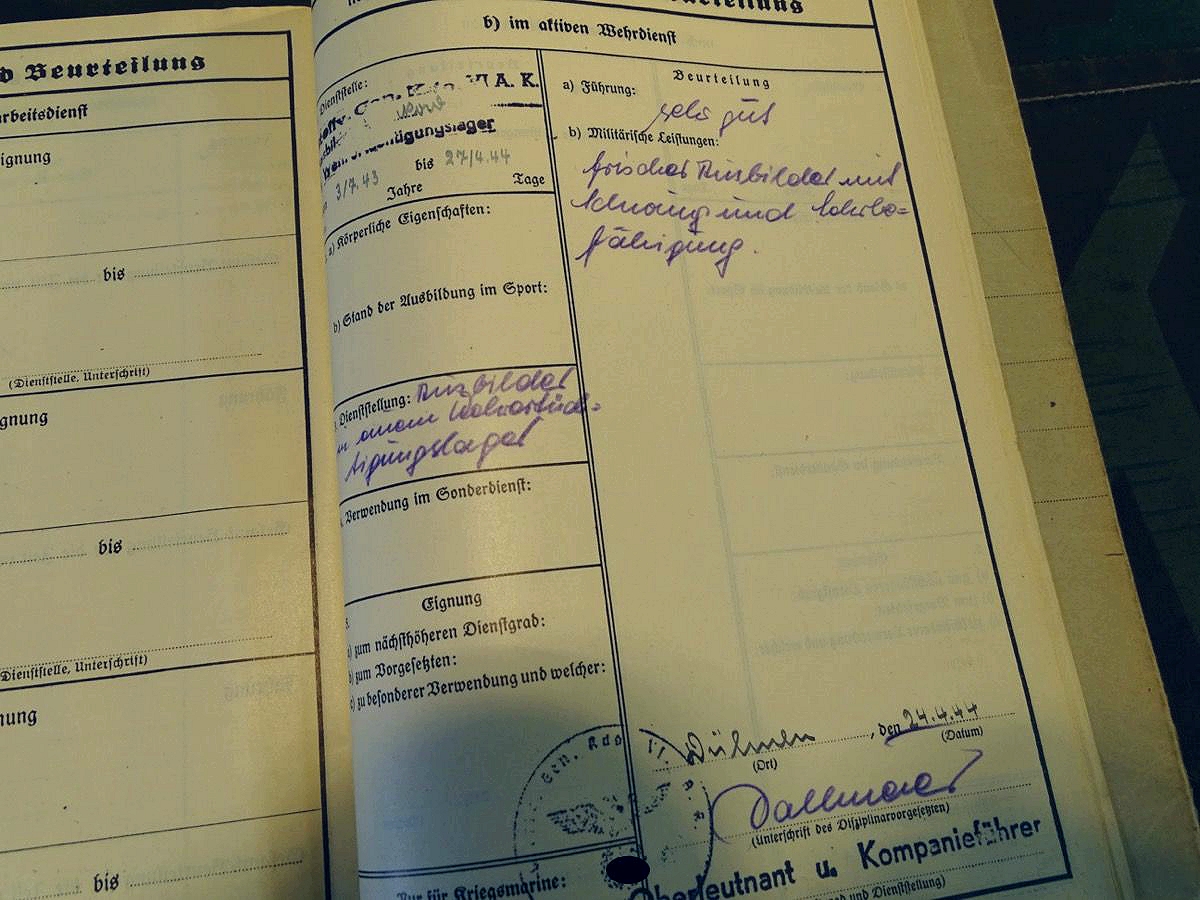 d Beurteilung
arbeitsdienst
ignung
bis
(Dienststelle, Unterschrift)
gnung
bis
Dienststelle, Unterschrift)
nung
bis
b) im aktiven Wehrdienst
Dienststelle:
Gen. Kdo. VI A. K.
Nord
3/7.43 bis 27/4.44
Jahre Tage
a) Körperliche Eigenschaften:
b) Stand der Ausbildung im Sport:
Dienststellung: Ausbilder
in einem Wehrertüch-
tigungslager
Verwendung im Sonderdienst:
Eignung
a) zum nächsthöheren Dienstgrad:
b) zum Vorgesetzten:
c) zu besonderer Verwendung und welcher:
Nur für Kriegsmarine:
Beurteilung
a) Führung:
sehr gut
b) Militärische Leistungen:
frischer Ausbilder mit
Schwung und Lehrbe=
fähigung.
Gen. Kdo VI. A. K.
Dülmen, den 24.4.44
(Ort) (Datum)
(Unterschrift des Disziplinarvorgesetzten)
Oberleutnant u. Kompanieführer
und Dienststellung)